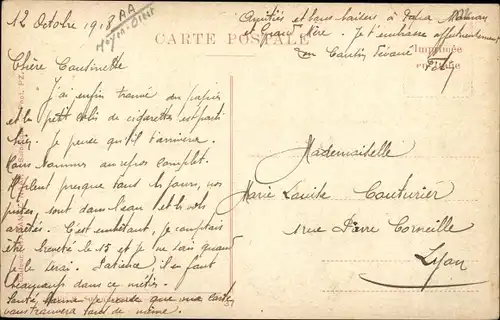 12 Octobre 1918
AA
Moyen-Orient
Amitiés et bons baisers à Papa Maman
et Grand Mère. Je t'embrasse affectueusement
ton Cousin
CARTE POSTALE
Imprimée
en Italie
Chère Cousinette
J'ai enfin trouvé du papier
et le petit colis de cigarettes est parti
hier. Je pense qu'il t'arrivera.
Nous sommes au repos complet.
Il pleut presque tous les jours, nos
pistes sont dans l'eau et les vols
arrêtés. C'est embêtant, je comptais
être breveté le 15 et je ne sais quand
je le serai. Patience, il en faut
beaucoup dans ce métier.
Santé bonne je pense que ma carte
vous trouvera tous de même.
Mademoiselle
Marie Louise Couturier
1 rue Pierre Corneille
Lyon